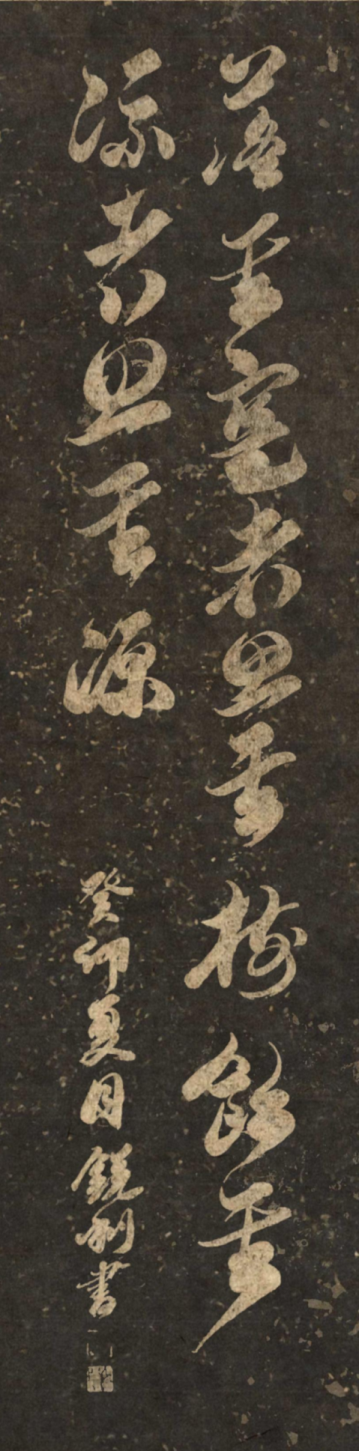 落其實者思其樹飲其
流者思其源
癸卯夏月銳利書